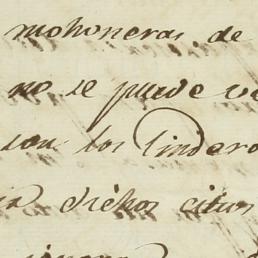 mohoneras de
no se puede ve
son los lindero
dichos citios